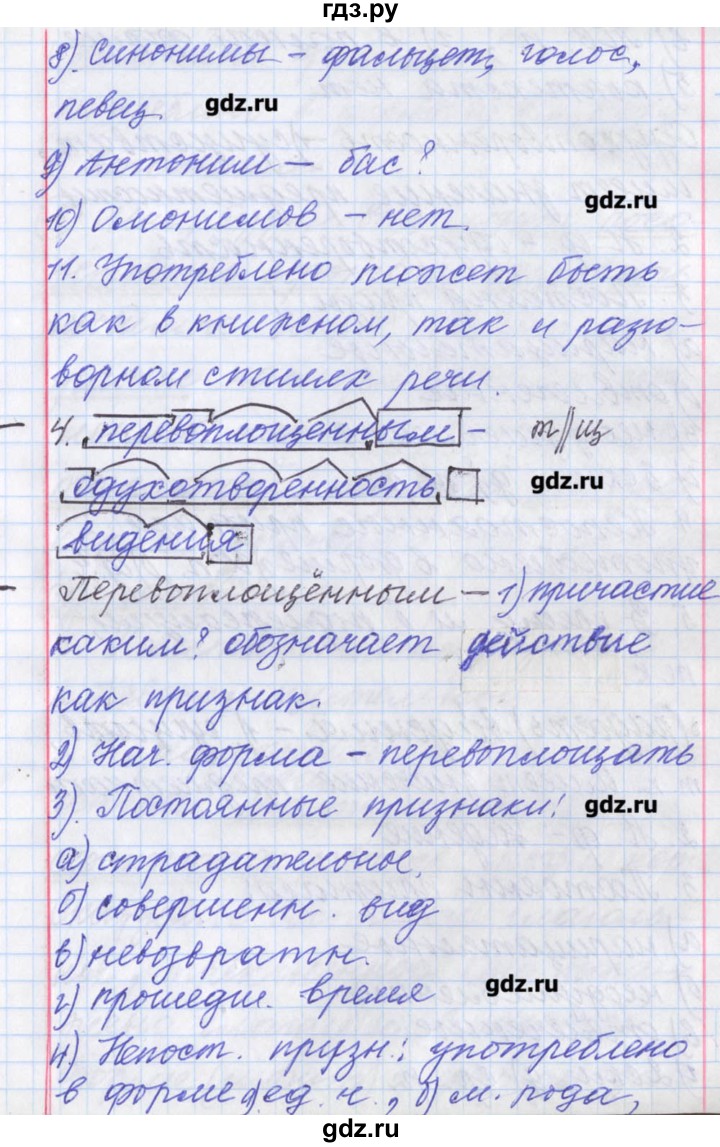 гдз.ру
8) синонимы – фальцет, голос,
певец. gdz.ru
9) Антоним – бас?
gdz.ru
10) Омонимов – нет.
11. Употреблено может быть
как в книжном, так и разго-
ворном стилях речи.
4. перевоплощенным – т//щ
одухотворенность gdz.ru
видения
Перевоплощённым – 1) причастие
каким? обозначает действие
как признак.
2) Нач. форма – перевоплощать
3). Постоянные признаки: gdz.ru
а) страдательное,
б) совершенн. вид
в) невозвратн.
г) прошедш. время gdz.ru
4) Непост. призн.: употреблено
в форме а) ед. ч., б) м. рода,
gdz.ru